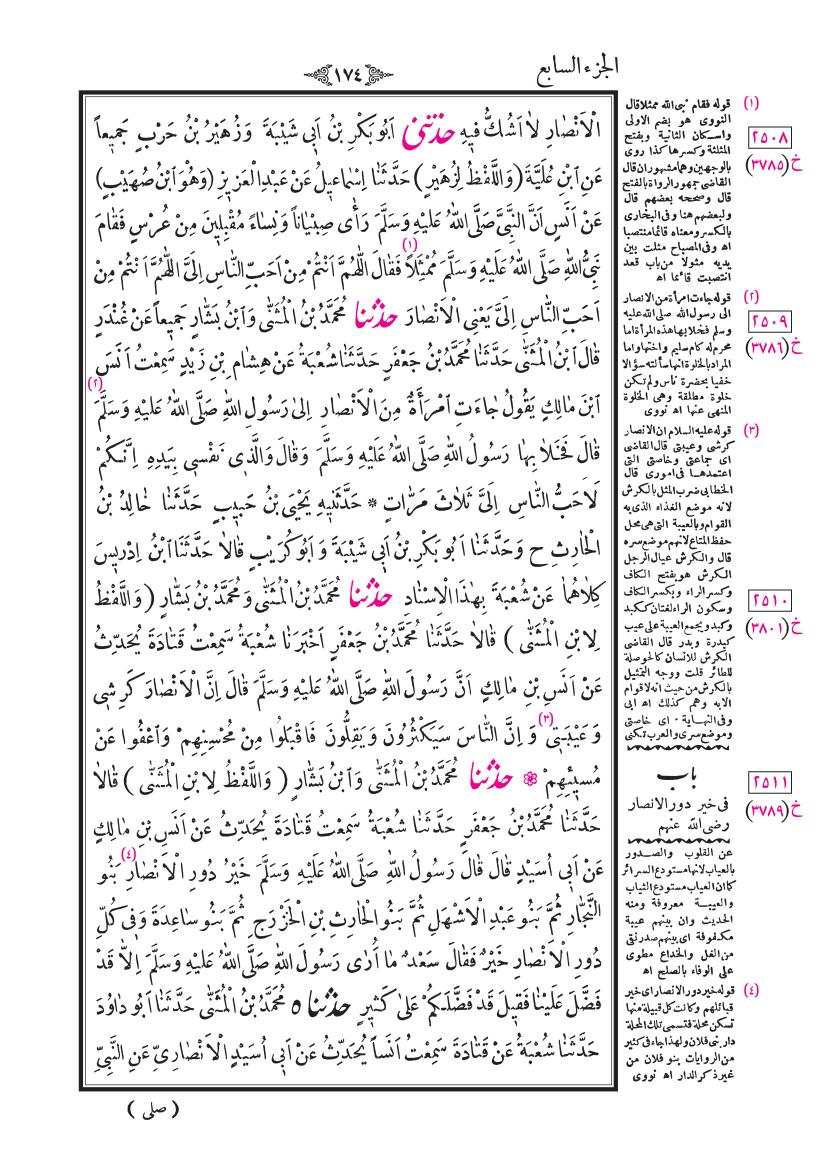 الجزء السابع
١٧٤
الْاَنْصَارِ لَا اَشُكُّ فِيهِ حَدَّثَنِى اَبُو بَكْرِ بْنُ اَبِى شَيْبَةَ وَزُهَيْرُ بْنُ حَرْبٍ جَمِيعاً
عَنِ ابْنِ عُلَيَّةَ (وَاللَّفْظُ لِزُهَيْرٍ) حَدَّثَنَا اِسْمَاعِيلُ عَنْ عَبْدِ الْعَزِيزِ (وَهُوَ ابْنُ صُهَيْبٍ)
عَنْ اَنَسٍ اَنَّ النَّبِىَّ صَلَّى اللّٰهُ عَلَيْهِ وَسَلَّمَ رَأٰى صِبْيَاناً وَنِسَاءً مُقْبِلِينَ مِنْ عُرْسٍ فَقَامَ
نَبِىُّ اللّٰهِ صَلَّى اللّٰهُ عَلَيْهِ وَسَلَّمَ مُمْثِلاً (١) فَقَالَ اللّٰهُمَّ اَنْتُمْ مِنْ اَحَبِّ النَّاسِ اِلَىَّ اللّٰهُمَّ اَنْتُمْ مِنْ
اَحَبِّ النَّاسِ اِلَىَّ يَعْنِى الْاَنْصَارَ حَدَّثَنَا مُحَمَّدُ بْنُ الْمُثَنّٰى وَابْنُ بَشَّارٍ جَمِيعاً عَنْ غُنْدَرٍ
قَالَ ابْنُ الْمُثَنّٰى حَدَّثَنَا مُحَمَّدُ بْنُ جَعْفَرٍ حَدَّثَنَا شُعْبَةُ عَنْ هِشَامِ بْنِ زَيْدٍ سَمِعْتُ اَنَسَ
ابْنَ مَالِكٍ يَقُولُ جَاءَتِ امْرَأَةٌ مِنَ الْاَنْصَارِ اِلٰى رَسُولِ اللّٰهِ صَلَّى اللّٰهُ عَلَيْهِ وَسَلَّمَ (٢)
قَالَ فَخَلَا بِهَا رَسُولُ اللّٰهِ صَلَّى اللّٰهُ عَلَيْهِ وَسَلَّمَ وَقَالَ وَالَّذِى نَفْسِى بِيَدِهِ اِنَّكُمْ
لَاَحَبُّ النَّاسِ اِلَىَّ ثَلَاثَ مَرَّاتٍ * حَدَّثَنِيهِ يَحْيَى بْنُ حَبِيبٍ حَدَّثَنَا خَالِدُ بْنُ
الْحَارِثِ ح وَحَدَّثَنَا اَبُو بَكْرِ بْنُ اَبِى شَيْبَةَ وَاَبُو كُرَيْبٍ قَالَا حَدَّثَنَا ابْنُ اِدْرِيسَ
كِلَاهُمَا عَنْ شُعْبَةَ بِهٰذَا الْاِسْنَادِ حَدَّثَنَا مُحَمَّدُ بْنُ الْمُثَنّٰى وَمُحَمَّدُ بْنُ بَشَّارٍ (وَاللَّفْظُ
لِابْنِ الْمُثَنّٰى) قَالَا حَدَّثَنَا مُحَمَّدُ بْنُ جَعْفَرٍ اَخْبَرَنَا شُعْبَةُ سَمِعْتُ قَتَادَةَ يُحَدِّثُ
عَنْ اَنَسِ بْنِ مَالِكٍ اَنَّ رَسُولَ اللّٰهِ صَلَّى اللّٰهُ عَلَيْهِ وَسَلَّمَ قَالَ اِنَّ الْاَنْصَارَ كَرِشِى
وَعَيْبَتِى (٣) وَاِنَّ النَّاسَ سَيَكْثُرُونَ وَيَقِلُّونَ فَاقْبَلُوا مِنْ مُحْسِنِهِمْ وَاعْفُوا عَنْ
مُسِيئِهِمْ حَدَّثَنَا مُحَمَّدُ بْنُ الْمُثَنّٰى وَابْنُ بَشَّارٍ (وَاللَّفْظُ لِابْنِ الْمُثَنّٰى) قَالَا
حَدَّثَنَا مُحَمَّدُ بْنُ جَعْفَرٍ حَدَّثَنَا شُعْبَةُ سَمِعْتُ قَتَادَةَ يُحَدِّثُ عَنْ اَنَسِ بْنِ مَالِكٍ
عَنْ اَبِى اُسَيْدٍ قَالَ قَالَ رَسُولُ اللّٰهِ صَلَّى اللّٰهُ عَلَيْهِ وَسَلَّمَ خَيْرُ دُورِ الْاَنْصَارِ (٤) بَنُو
النَّجَّارِ ثُمَّ بَنُو عَبْدِ الْاَشْهَلِ ثُمَّ بَنُو الْحَارِثِ بْنِ الْخَزْرَجِ ثُمَّ بَنُو سَاعِدَةَ وَفِى كُلِّ
دُورِ الْاَنْصَارِ خَيْرٌ فَقَالَ سَعْدٌ مَا اُرٰى رَسُولَ اللّٰهِ صَلَّى اللّٰهُ عَلَيْهِ وَسَلَّمَ اِلَّا قَدْ
فَضَّلَ عَلَيْنَا فَقِيلَ قَدْ فَضَّلَكُمْ عَلٰى كَثِيرٍ حَدَّثَنَا ٥ مُحَمَّدُ بْنُ الْمُثَنّٰى حَدَّثَنَا اَبُو دَاوُدَ
حَدَّثَنَا شُعْبَةُ عَنْ قَتَادَةَ سَمِعْتُ اَنَساً يُحَدِّثُ عَنْ اَبِى اُسَيْدٍ الْاَنْصَارِىِّ عَنِ النَّبِىِّ
( صلى )
(١) قوله فقام نبى الله ممثلا قال
النووى هو بضم الاولى
واسكان الثانية وبفتح
المثلثة وكسرها كذا روى
بالوجهين وهما مشهوران قال
القاضى جمهور الرواة بالفتح
قال وصححه بعضهم قال
ولبعضهم هنا وفى البخارى
بالكسر ومعناه قائما منتصبا
اه وفى المصباح مثلت بين
يديه مثولا من باب قعد
انتصبت قائما اه
(٢) قوله جاءت امرأة من الانصار
الى رسول الله صلى الله عليه
وسلم فخلا بها هذه المرأة اما
محرم له كام سليم واختها واما
المراد بالخلوة انها سألته سؤالا
خفيا بحضرة ناس ولم تكن
خلوة مطلقة وهى الخلوة
المنهى عنها اه نووى
(٣) قوله عليه السلام ان الانصار
كرشى وعيبتى قال القاضى
اى جماعتى وخاصتى التى
اعتمدها فى امورى قال
الخطابى ضرب المثل بالكرش
لانه موضع الغذاء الذى به
القوام وبالعيبة التى هى محل
حفظ المتاع لانهم موضع سره
قال والكرش عيال الرجل
الكرش هو بفتح الكاف
وكسر الراء وبكسر الكاف
وسكون الراء لغتان ككبد
وكبد ويجمع العيبة على عيب
كبدرة وبدر قال القاضى
الكرش للانسان كالحوصلة
للطائر قلت ووجه التمثيل
بالكرش من حيث انه لا قوام
الابه وهم كذلك اه ابى
وفى النهاية اى خاصتى
وموضع سرى والعرب تكنى
باب
فى خير دور الانصار
رضى الله عنهم
عن القلوب والصدور
بالعياب لانها مستودع السرائر
كما ان العياب مستودع الثياب
والعيبة معروفة ومنه
الحديث وان بينهم عيبة
مكفوفة اى بينهم صدر نقى
من الغل والخداع مطوى
على الوفاء بالصلح اه
(٤) قوله خير دور الانصار اى خير
قبائلهم وكانت كل قبيلة منها
تسكن محلة فتسمى تلك المحلة
دار بنى فلان ولهذا جاء فى كثير
من الروايات بنو فلان من
غير ذكر الدار اه نووى
٢٥٠٨
خ (٣٧٨٥)
٢٥٠٩
خ (٣٧٨٦)
٢٥١٠
خ (٣٨٠١)
٢٥١١
خ (٣٧٨٩)